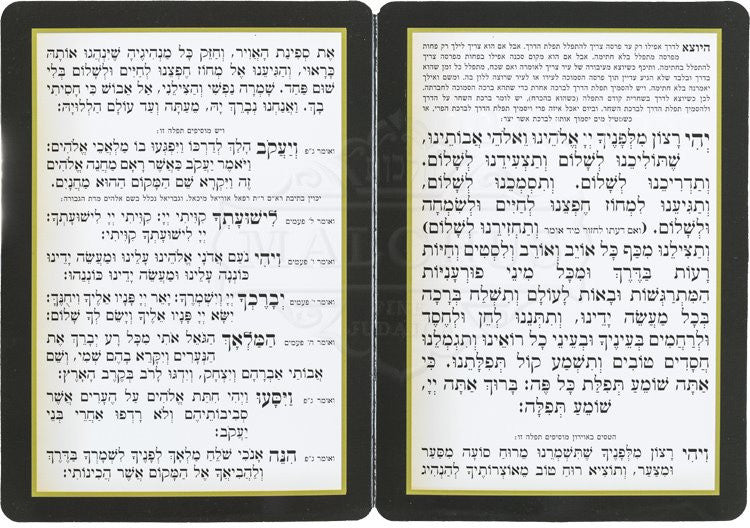 היוצא לדרך אפילו רק עד פרסה צריך להתפלל תפלת הדרך. אבל אם הוא צריך לילך רק פחות
מפרסה מתפלל בלא חתימה. אבל אם הוא מקום סכנה אפילו בפחות מפרסה צריך
להתפלל בחתימה. ותיכף כשיוצא מעיבורה של עיר צריך לאומרה ואם שכח, מתפלל כל זמן שהוא
בדרך ובלבד שלא הגיע עדיין תוך פרסה הסמוכה לעירו או לעיר שרוצה ללון בה. ומשם ואילך
יאמרנה בלא חתימה. ויש להסמיך תפלת הדרך לברכה אחרת כדי שתהא ברכה הסמוכה לחברתה.
לכן כשיוצא בשחרית קודם התפלה (כשהוא בהכרח), יש לומר ברכת השחר על הדרך
ולהסמיך תפלת הדרך לברכת השחר. וביום יאכל איזה פרי ויסמיך תפלת הדרך לברכת הפרי, או
כשטיל מים יסמוך אותו לברכת אשר יצר:
יְהִי רָצוֹן מִלְּפָנֶיךָ יְיָ אֱלֹהֵינוּ וֵאלֹהֵי אֲבוֹתֵינוּ,
שֶׁתּוֹלִיכֵנוּ לְשָׁלוֹם וְתַצְעִידֵנוּ לְשָׁלוֹם.
וְתַדְרִיכֵנוּ לְשָׁלוֹם. וְתִסְמְכֵנוּ לְשָׁלוֹם.
וְתַגִּיעֵנוּ לִמְחוֹז חֶפְצֵנוּ לְחַיִּים וּלְשִׂמְחָה
וּלְשָׁלוֹם. (ואם דעתו לחזור מיד אומר וְתַחְזִירֵנוּ לְשָׁלוֹם)
וְתַצִּילֵנוּ מִכַּף כָּל אוֹיֵב וְאוֹרֵב וְלִסְטִים וְחַיּוֹת
רָעוֹת בַּדֶּרֶךְ וּמִכָּל מִינֵי פּוּרְעָנִיּוֹת
הַמִּתְרַגְּשׁוֹת וּבָאוֹת לָעוֹלָם וְתִשְׁלַח בְּרָכָה
בְּכָל מַעֲשֵׂה יָדֵינוּ, וְתִתְּנֵנוּ לְחֵן וּלְחֶסֶד
וּלְרַחֲמִים בְּעֵינֶיךָ וּבְעֵינֵי כָל רוֹאֵינוּ וְתִגְמְלֵנוּ
חֲסָדִים טוֹבִים וְתִשְׁמַע קוֹל תְּפִלָּתֵנוּ. כִּי
אַתָּה שׁוֹמֵעַ תְּפִלַּת כָּל פֶּה: בָּרוּךְ אַתָּה יְיָ,
שׁוֹמֵעַ תְּפִלָּה:
הטסים באוירון מוסיפים תפלה זו:
וִיהִי רָצוֹן מִלְּפָנֶיךָ שֶׁתִּשְׁמְרֵנוּ מֵרוּחַ סוֹעָה מִסַּעַר
וּמִצַּעַר, וְתוֹצִיא רוּחַ טוֹב מֵאוֹצְרוֹתֶיךָ לְהַנְהִיג
אֶת סְפִינַת הָאֲוִיר, וְחַזֵּק כָּל מַנְהִיגֶיהָ שֶׁיִּנְהֲגוּ אוֹתָהּ
כָּרָאוּי, וְהַגִּיעֵנוּ אֶל מְחוֹז חֶפְצֵנוּ לְחַיִּים וּלְשָׁלוֹם בְּלִי
שׁוּם פַּחַד. שָׁמְרָה נַפְשִׁי וְהַצִּילֵנִי, אַל אֵבוֹשׁ כִּי חָסִיתִי
בָךְ. וַאֲנַחְנוּ נְבָרֵךְ יָהּ, מֵעַתָּה וְעַד עוֹלָם הַלְלוּיָהּ:
ויש מוסיפים תפלה זו:
ואומר ג"פ וְיַעֲקֹב הָלַךְ לְדַרְכּוֹ וַיִּפְגְּעוּ בוֹ מַלְאֲכֵי אֱלֹהִים:
וַיֹּאמֶר יַעֲקֹב כַּאֲשֶׁר רָאָם מַחֲנֵה אֱלֹהִים
זֶה וַיִּקְרָא שֵׁם הַמָּקוֹם הַהוּא מַחֲנָיִם.
יכוין בתיבת רא"ם ר"ת רפאל אוריאל מיכאל, וגבריאל נכלל בשם אלהים מדת הגבורה:
ואומר ל' פעמים לִישׁוּעָתְךָ קִוִּיתִי יְיָ: קִוִּיתִי יְיָ לִישׁוּעָתְךָ:
יְיָ לִישׁוּעָתְךָ קִוִּיתִי:
ואומר ז' פעמים וִיהִי נֹעַם אֲדֹנָי אֱלֹהֵינוּ עָלֵינוּ וּמַעֲשֵׂה יָדֵינוּ
כּוֹנְנָה עָלֵינוּ וּמַעֲשֵׂה יָדֵינוּ כּוֹנְנֵהוּ:
ואומר י' פעמים יְבָרֶכְךָ יְיָ וְיִשְׁמְרֶךָ: יָאֵר יְיָ פָּנָיו אֵלֶיךָ וִיחֻנֶּךָּ:
יִשָּׂא יְיָ פָּנָיו אֵלֶיךָ וְיָשֵׂם לְךָ שָׁלוֹם:
ואומר ה' פעמים הַמַּלְאָךְ הַגֹּאֵל אֹתִי מִכָּל רָע יְבָרֵךְ אֶת
הַנְּעָרִים וְיִקָּרֵא בָהֶם שְׁמִי, וְשֵׁם
אֲבוֹתַי אַבְרָהָם וְיִצְחָק, וְיִדְגּוּ לָרֹב בְּקֶרֶב הָאָרֶץ:
ואומר ג"פ וַיִּסָּעוּ וַיְהִי חִתַּת אֱלֹהִים עַל הֶעָרִים אֲשֶׁר
סְבִיבוֹתֵיהֶם וְלֹא רָדְפוּ אַחֲרֵי בְּנֵי
יַעֲקֹב:
ואומר ג"פ הִנֵּה אָנֹכִי שֹׁלֵחַ מַלְאָךְ לְפָנֶיךָ לִשְׁמָרְךָ בַּדֶּרֶךְ
וְלַהֲבִיאֲךָ אֶל הַמָּקוֹם אֲשֶׁר הֲכִינוֹתִי: